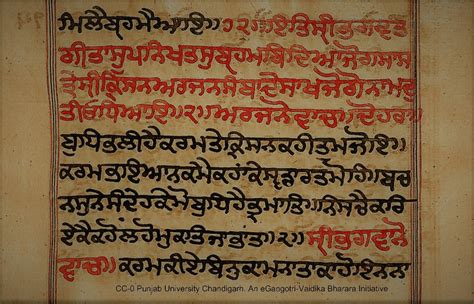 ਮਿਲੈਬ੍ਰਹਮੈਆਇ॥੧੨॥ਇਤਿਸ੍ਰੀਭਗਵਤ
ਗੀਤਾਸੂਪਨਿਖਤਸੁਬ੍ਰਹਮਬਿਦਿਆਜੋਗਸਾਸ
ਤ੍ਰੇਸ੍ਰੀਕ੍ਰਿਸਨਅਰਜਨਸੰਬਾਦੇਸਾਖਜੋਗੋਨਾਮਦੁ
ਤੀਅਧਿਆਇ॥੨॥ਅਰਜਨੋਵਾਚ॥ਦੋਹਰਾ॥
ਬੁਧਿਤਲੀਹੈਕਰਮਤੇਕ੍ਰਿਸਨਕਹੀਤੁਮਜੋਇ॥
ਕਰਮਤਾਇਆਨਕਮੈਕਹਾਂਕੇਸ੍ਵਡਾਰਤਮੋਹਿ॥ਬਚ
ਨਸੁਨੇਸੰਦੇਹਕੇਬੁਧਿਹੈਭ੍ਰਮਾਤਿ॥ਨਿਸਚੈਕਰਿ
ਏਕੈਕਹੋਲਹੋਮੁਕਤਿਜਾਭਾਂਤ॥੨॥ਸ੍ਰੀਭਗਵਾਨੋ
ਵਾਚ॥ਕਰਮਕੀਏਬਿਨੁਕਾਮਨਾਤਾਕੋਹੋਇ
CC-0 Punjab University Chandigarh. An eGangotri-Vaidika Bharara Initiative